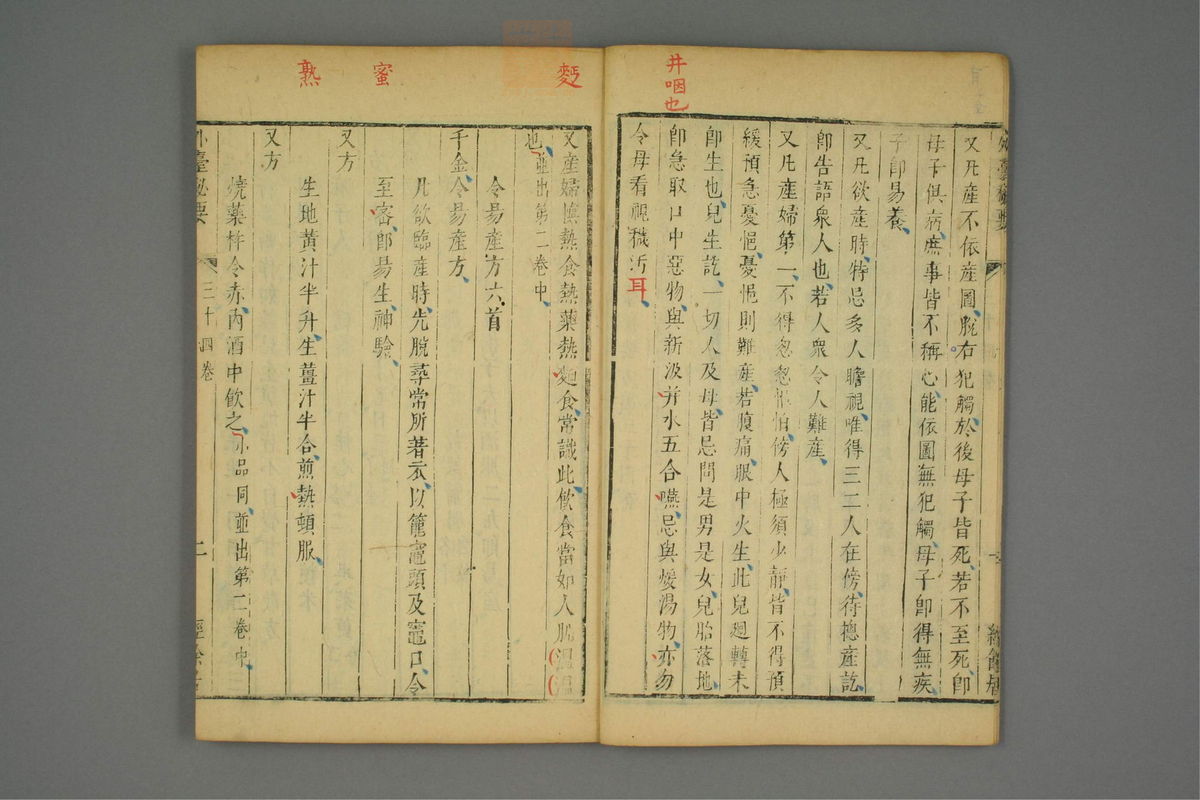 井咽也
又凡産不依産圖脫右犯觸於後母子皆死若不至死即
母子俱病庶事皆不稱心能依圖無犯觸母子即得無疾
子即易養
又凡欲産時特忌多人瞻視唯得三二人在傍待摠産訖
即告語衆人也若人衆令人難産
又凡産婦第一不得忽忽惧怕傍人極須少静皆不得預
緩預急憂悒憂悒則難産若腹痛眼中火生此兒迴轉未
即生也兒生訖一切人及母皆忌問是男是女兒胎落地
即急取口中惡物與新汲井水五合嚥忌與煖湯物亦勿
令母看視穢汚耳
麪
蜜
熟
又産婦慎熱食熱藥熱麵食常識此飲食當如人肌温温
也並出第二卷中
令易産方六首
千金令易産方
凡欲臨産時先脫尋常所著衣以籠竈頭及竈口令
至密即易生神驗
又方
生地黄汁半升生薑汁半合煎熱頓服
又方
燒藥杵令赤内酒中飲之小品同並出第二卷中
外臺秘要
三十四卷
二